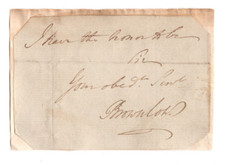 I have the honor to be
Sir
Your obed.t Serv.t
Brownlow